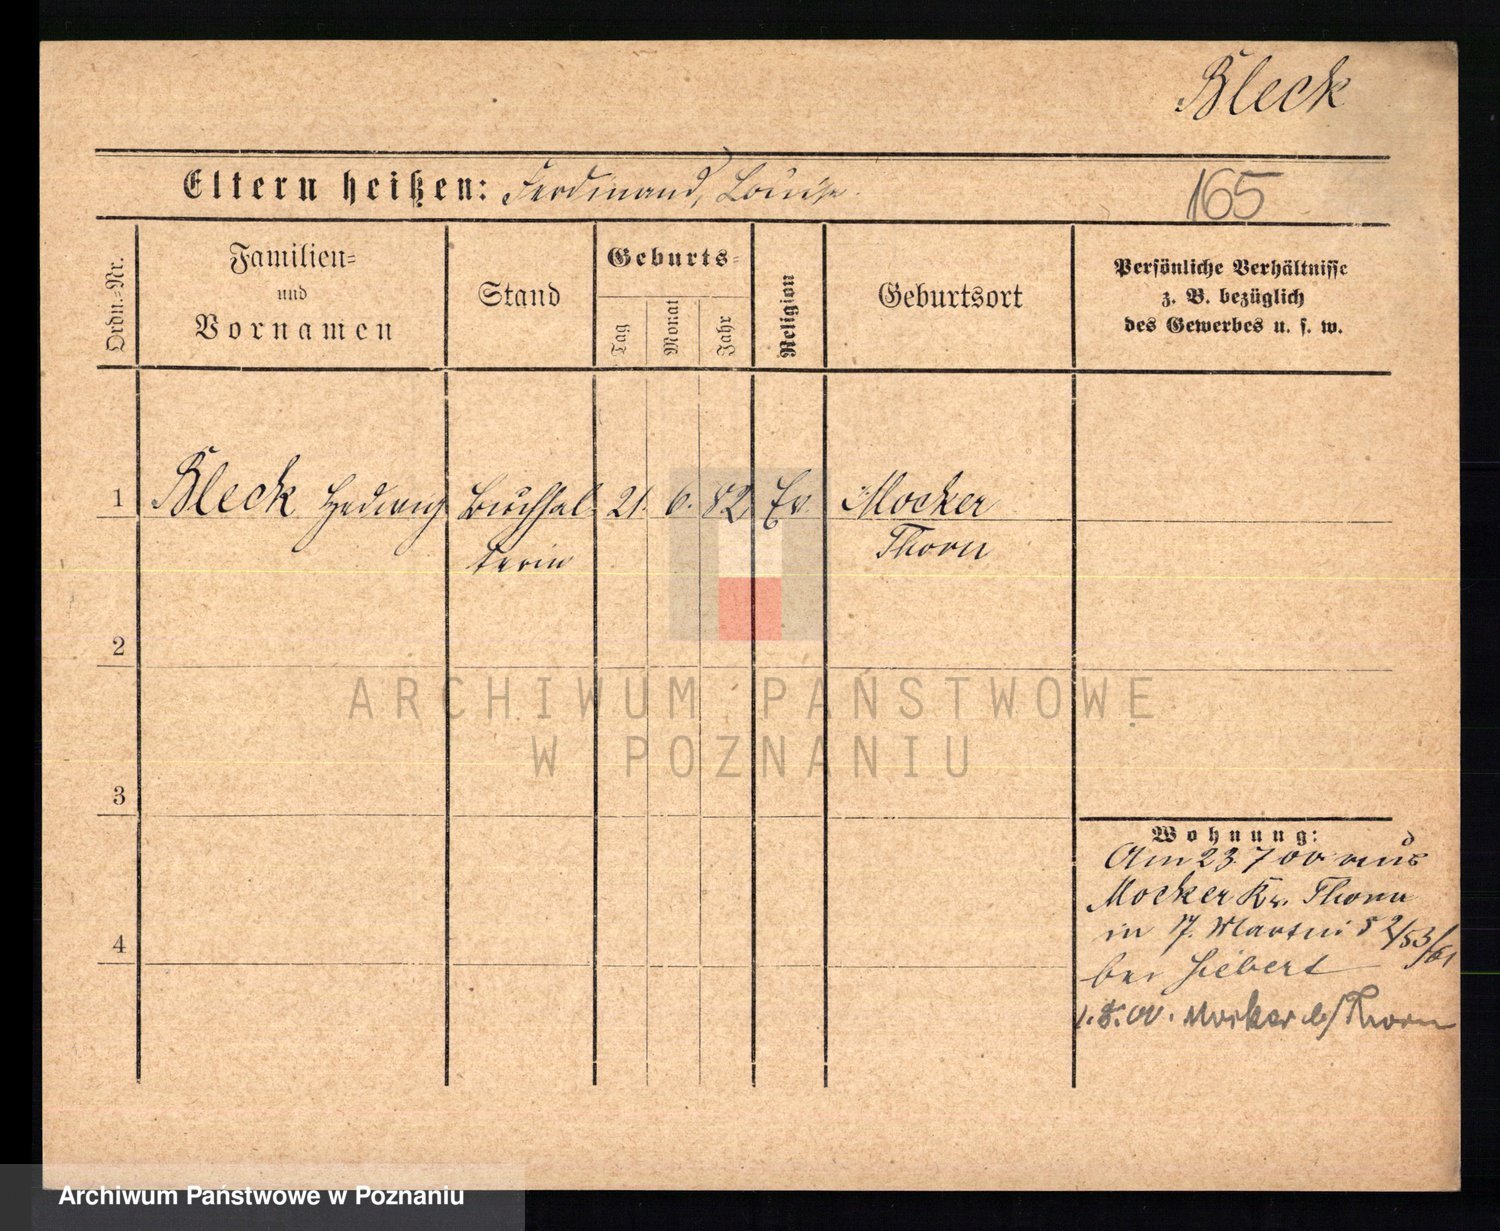 Bleck
Eltern heißen: Ferdinand, Louise.
165
Ordn.=Nr.
Familien=
und
Vornamen
Stand
Geburts=
Tag
Monat
Jahr
Religion
Geburtsort
Persönliche Verhältnisse
z. B. bezüglich
des Gewerbes u. s. w.
1 Bleck Hedwig Buchhal 21. 6. 82 Ev. Mocker
terin Thorn
2
3
4
ARCHIWUM PAŃSTWOWE
W POZNANIU
Wohnung:
Am 23 7 00 aus
Mocker Kr. Thorn
in Martini 52/53/61
bei Siebert
1.8.00. Mocker b/Thorn
Archiwum Państwowe w Poznaniu